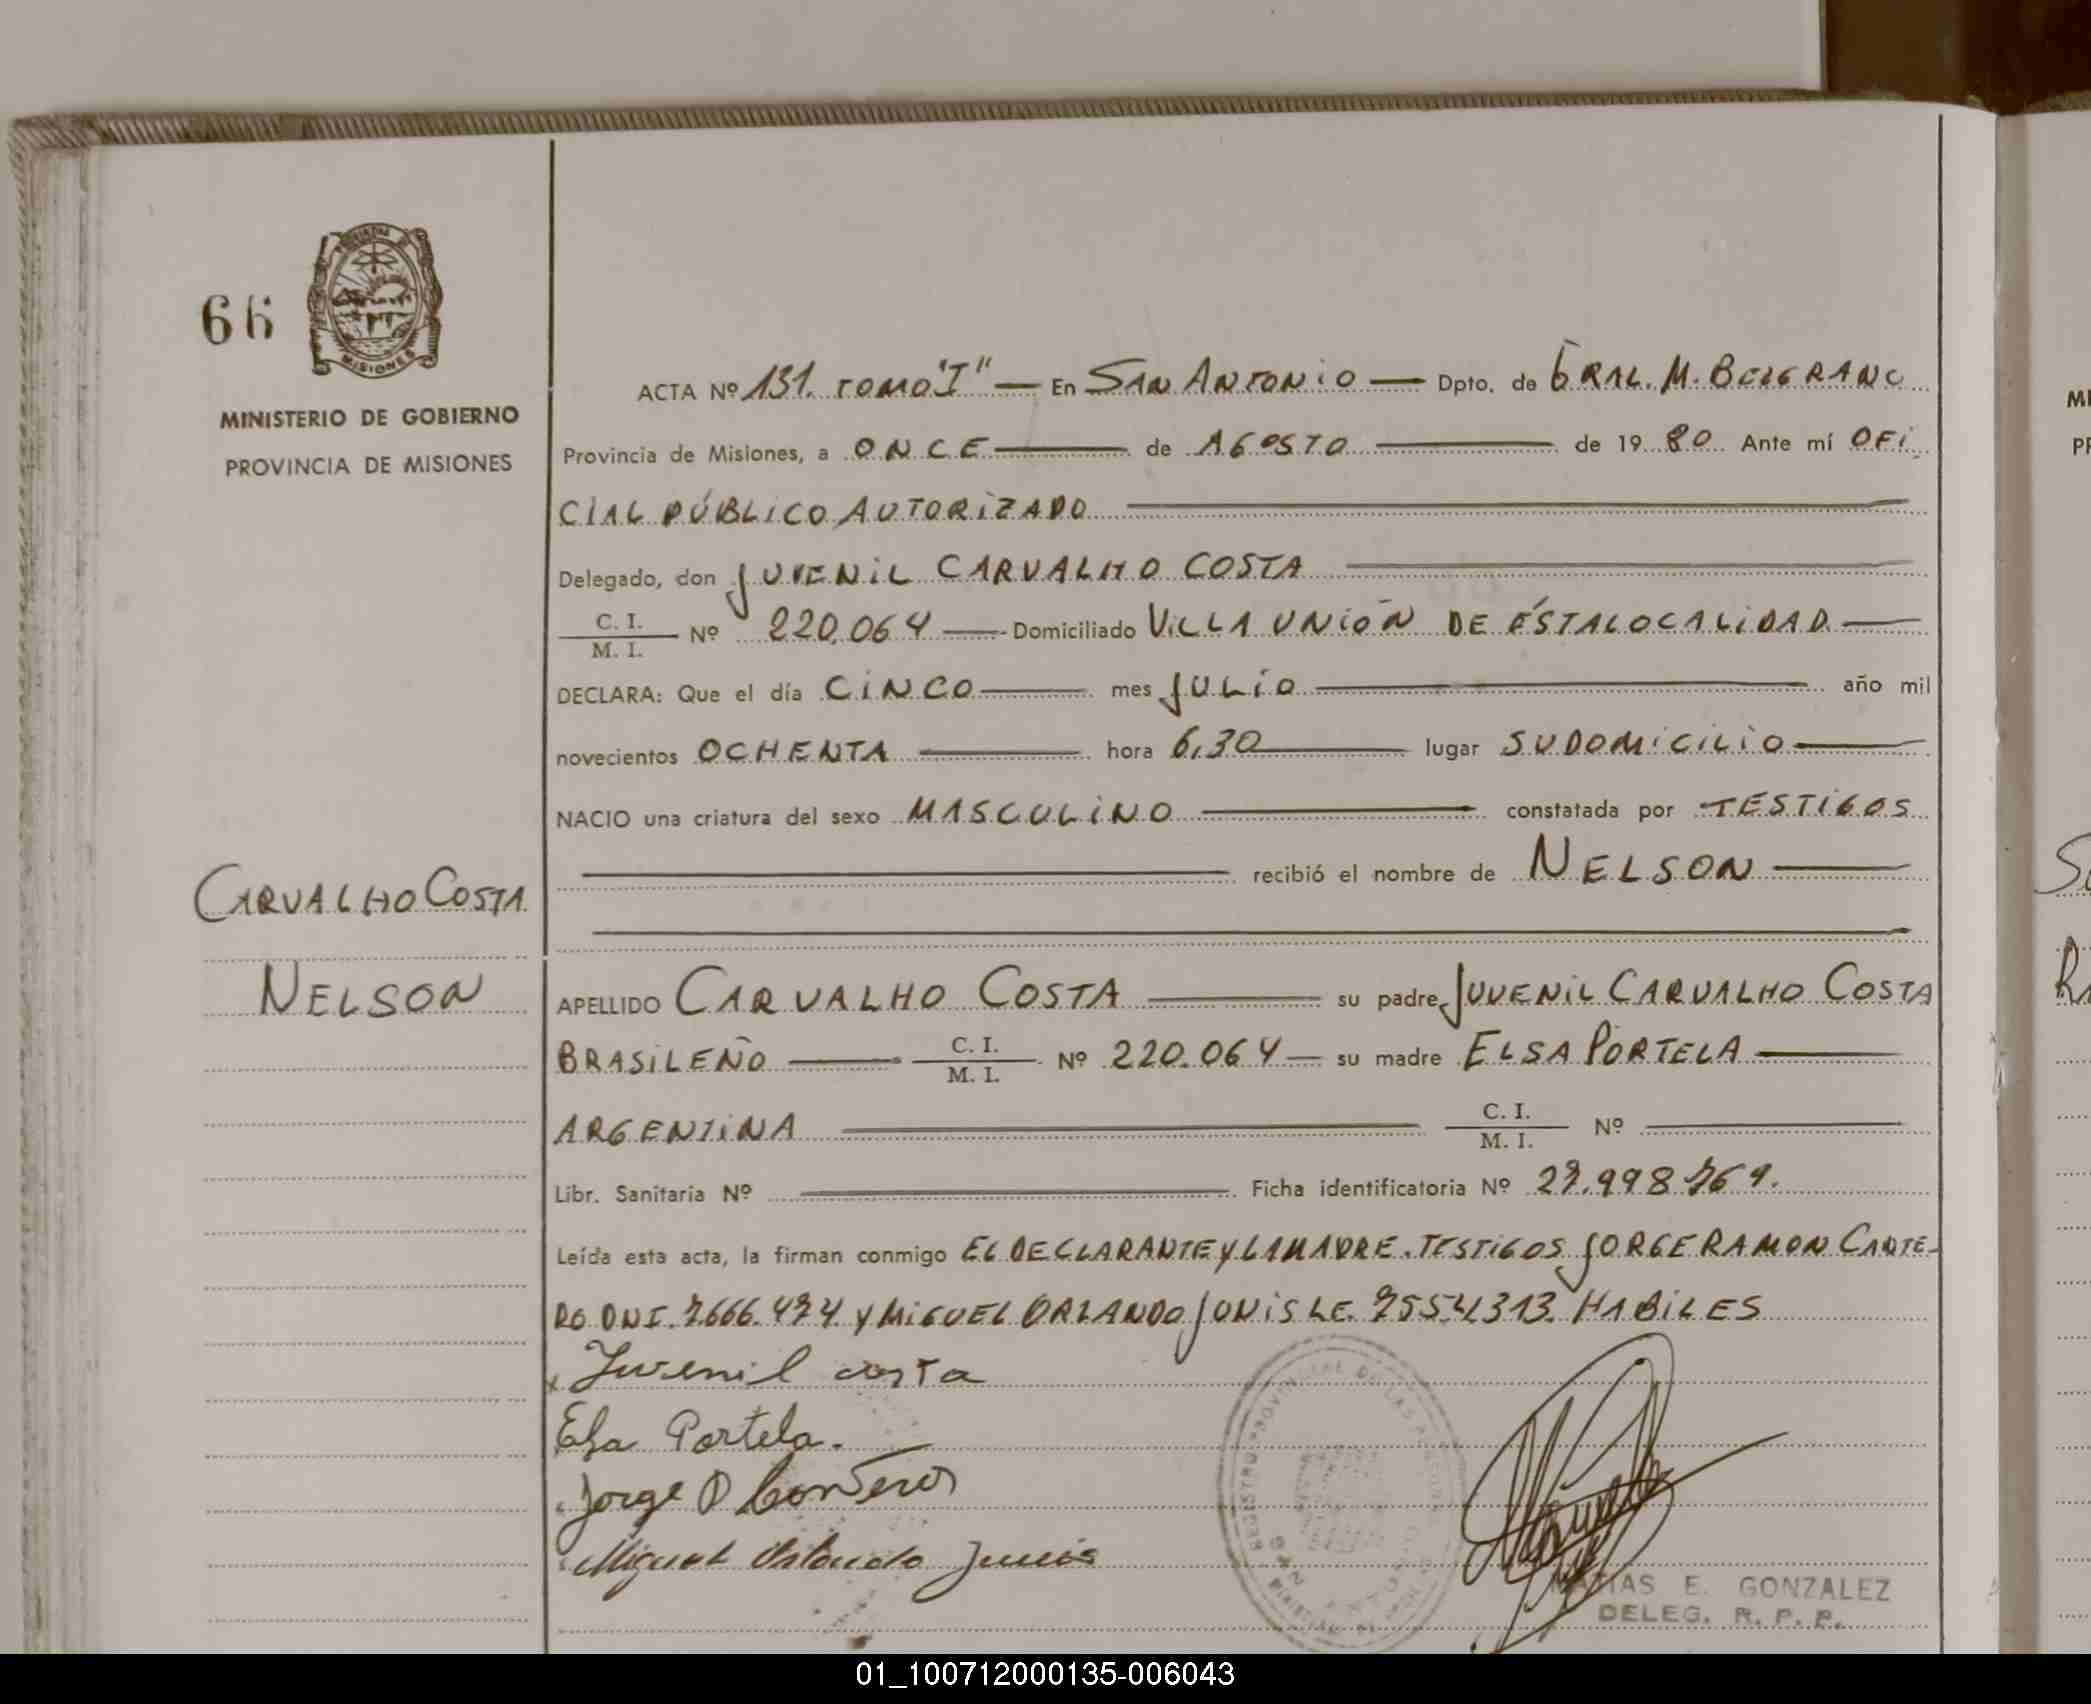 66
MISIONES
MINISTERIO DE GOBIERNO
PROVINCIA DE MISIONES
ACTA Nº 131. TOMO "I" — En SAN ANTONIO — Dpto. de GRAL. M. BELGRANO
Provincia de Misiones, a ONCE — de AGOSTO — de 1980 Ante mí OFI
CIAL PÚBLICO AUTORIZADO
Delegado, don JUVENIL CARVALHO COSTA
C. I. / M. I. Nº 220.064 — Domiciliado VILLA UNIÓN DE ÉSTA LOCALIDAD.
DECLARA: Que el día CINCO — mes JULIO — año mil
novecientos OCHENTA — hora 6,30 — lugar SU DOMICILIO
NACIO una criatura del sexo MASCULINO — constatada por TESTIGOS
recibió el nombre de NELSON
CARVALHO COSTA
NELSON
APELLIDO CARVALHO COSTA — su padre JUVENIL CARVALHO COSTA
BRASILEÑO — C. I. / M. I. Nº 220.064 — su madre ELSA PORTELA
ARGENTINA — C. I. / M. I. Nº
Libr. Sanitaria Nº — Ficha identificatoria Nº 27.998.769.
Leída esta acta, la firman conmigo EL DECLARANTE Y LA MADRE. TESTIGOS JORGE RAMON CANTE-
RO DNI. 7.666.474. Y MIGUEL ORLANDO JUNIS LE. 7554313. HABILES
x Juvenil costa
Elsa Portela.
Jorge R Canteros
Miguel Orlando Junis
REGISTRO PROVINCIAL DE LAS
MATIAS E. GONZALEZ
DELEG. R. P. P.
01_100712000135-006043